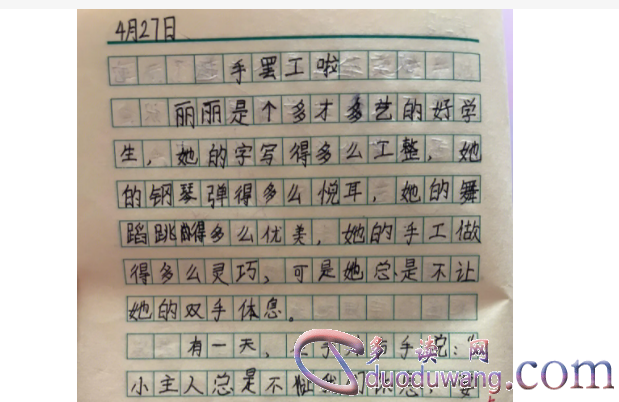 4月27日
手罢工啦
丽丽是个多才多艺的好学
生，她的字写得多么工整，她
的钢琴弹得多么悦耳，她的舞
蹈跳的得多么优美，她的手工做
得多么灵巧，可是她总是不让
她的双手体息。
有一天，手手说：“
小主人总是不让我们
多读网
duoduwang.com